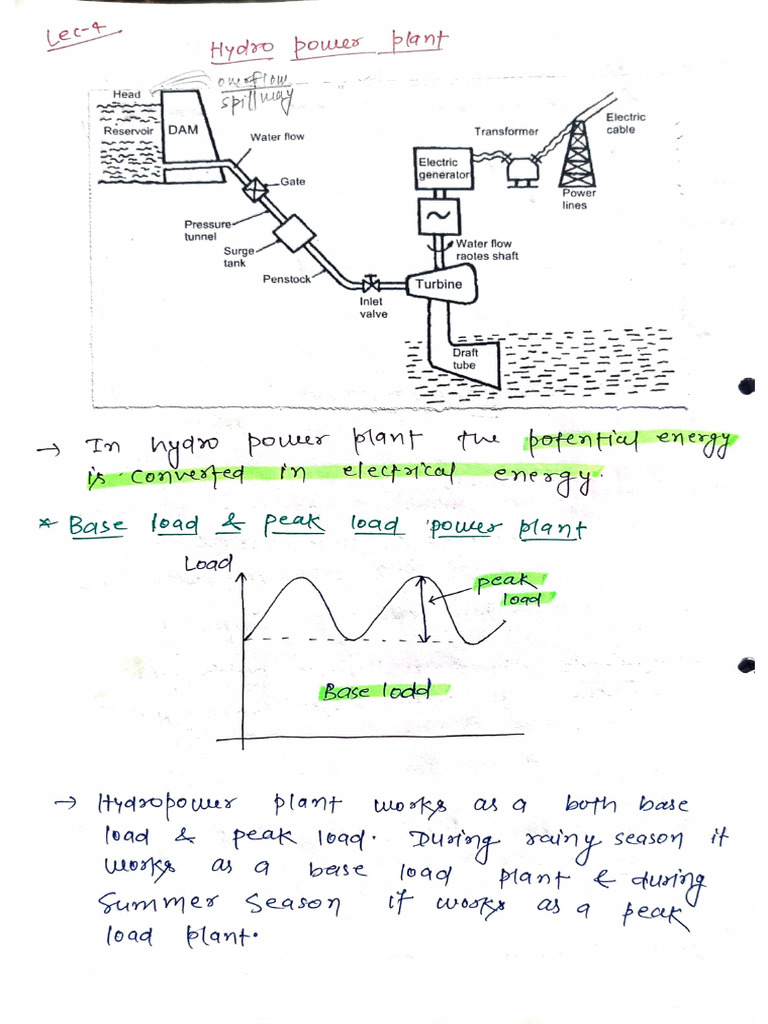 Lec-4
Hydro power plant
overflow
spillway
Head
Reservoir
DAM
Water flow
Gate
Pressure
tunnel
Surge
tank
Penstock
Inlet
valve
Turbine
Draft
tube
Water flow
raotes shaft
Electric
generator
Transformer
Electric
cable
Power
lines
→ In hydro power plant the potential energy
is converted in electrical energy.
* Base load & peak load power plant
Load
peak
load
Base lodd
→ Hydropower plant works as a both base
load & peak load. During rainy season it
works as a base load plant & during
Summer season it works as a peak
load plant.